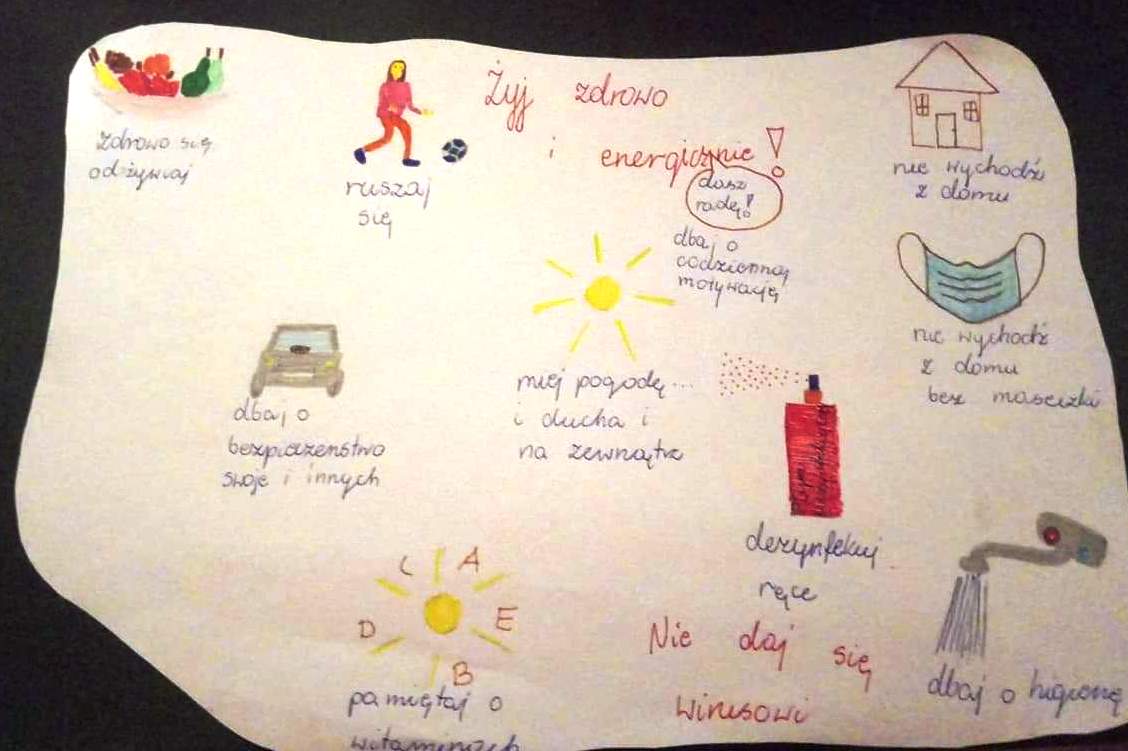 Żyj zdrowo
i energicznie!
zdrowo się
odżywiaj
ruszaj
się
dasz
radę!
dbaj o
codzienną
motywację
nie wychodź
z domu
nie wychodź
z domu
bez maseczki
dbaj o
bezpieczeństwo
swoje i innych
miej pogodę...
i ducha i
na zewnątrz
dezynfekuj
ręce
C A
D E
B
pamiętaj o
witaminach
Nie daj się
wirusowi
dbaj o higienę